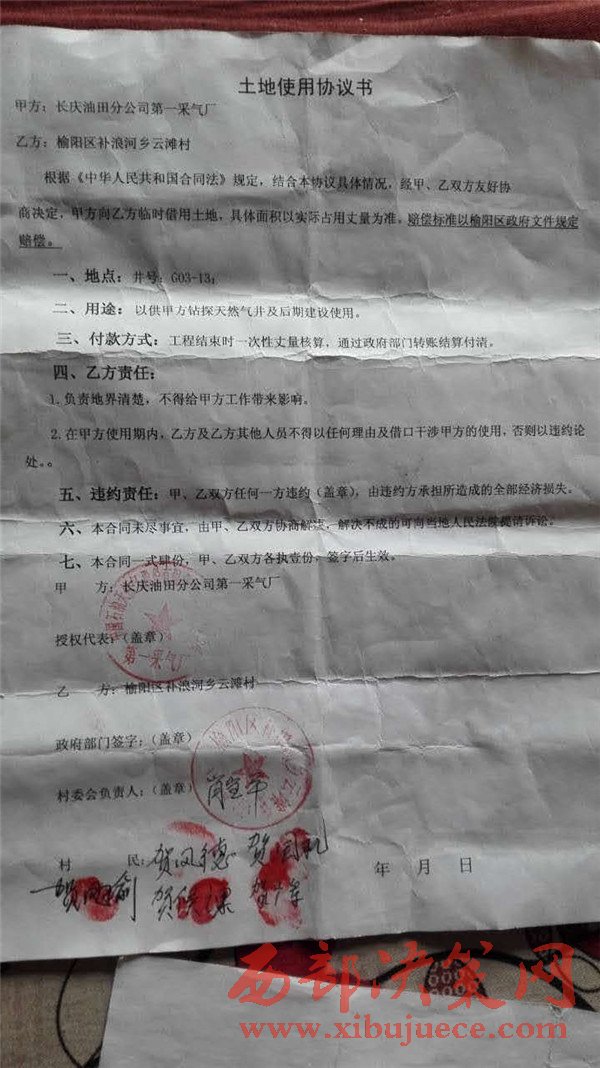 土地使用协议书
甲方：长庆油田分公司第一采气厂
乙方：榆阳区补浪河乡云滩村
根据《中华人民共和国合同法》规定，结合本协议具体情况，经甲、乙双方友好协
商决定，甲方向乙方临时借用土地，具体面积以实际占用丈量为准，赔偿标准以榆阳区政府文件规定
赔偿。
一、地点：井号：G03-13；
二、用途：以供甲方钻探天然气井及后期建设使用。
三、付款方式：工程结束时一次性丈量核算，通过政府部门转账结算付清。
四、乙方责任：
1.负责地界清楚，不得给甲方工作带来影响。
2.在甲方使用期内，乙方及乙方其他人员不得以任何理由及借口干涉甲方的使用，否则以违约论
处。。
五、违约责任：甲、乙双方任何一方违约（盖章），由违约方承担所造成的全部经济损失。
六、本合同未尽事宜，由甲、乙双方协商解决，解决不成的可向当地人民法院提请诉讼。
七、本合同一式肆份，甲、乙双方各执壹份，签字后生效。
甲 方：长庆油田分公司第一采气厂
授权代表：（盖章）
第一采气厂
乙 方：榆阳区补浪河乡云滩村
政府部门签字：（盖章）
村委会负责人：（盖章）
村 民：贺
年 月 日
贺 贺 贺
西部决策网
www.xibujuece.com